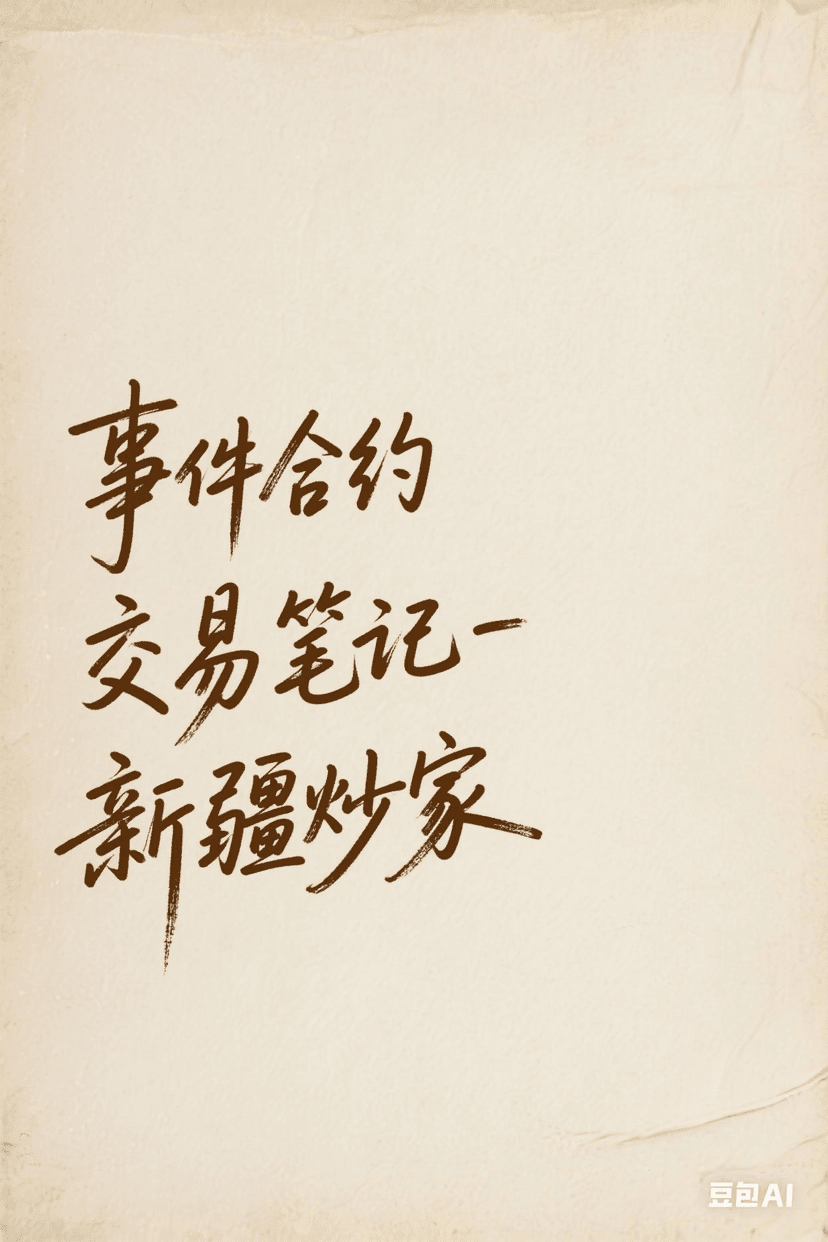 事件合约
交易笔记一
新疆炒家
豆包AI